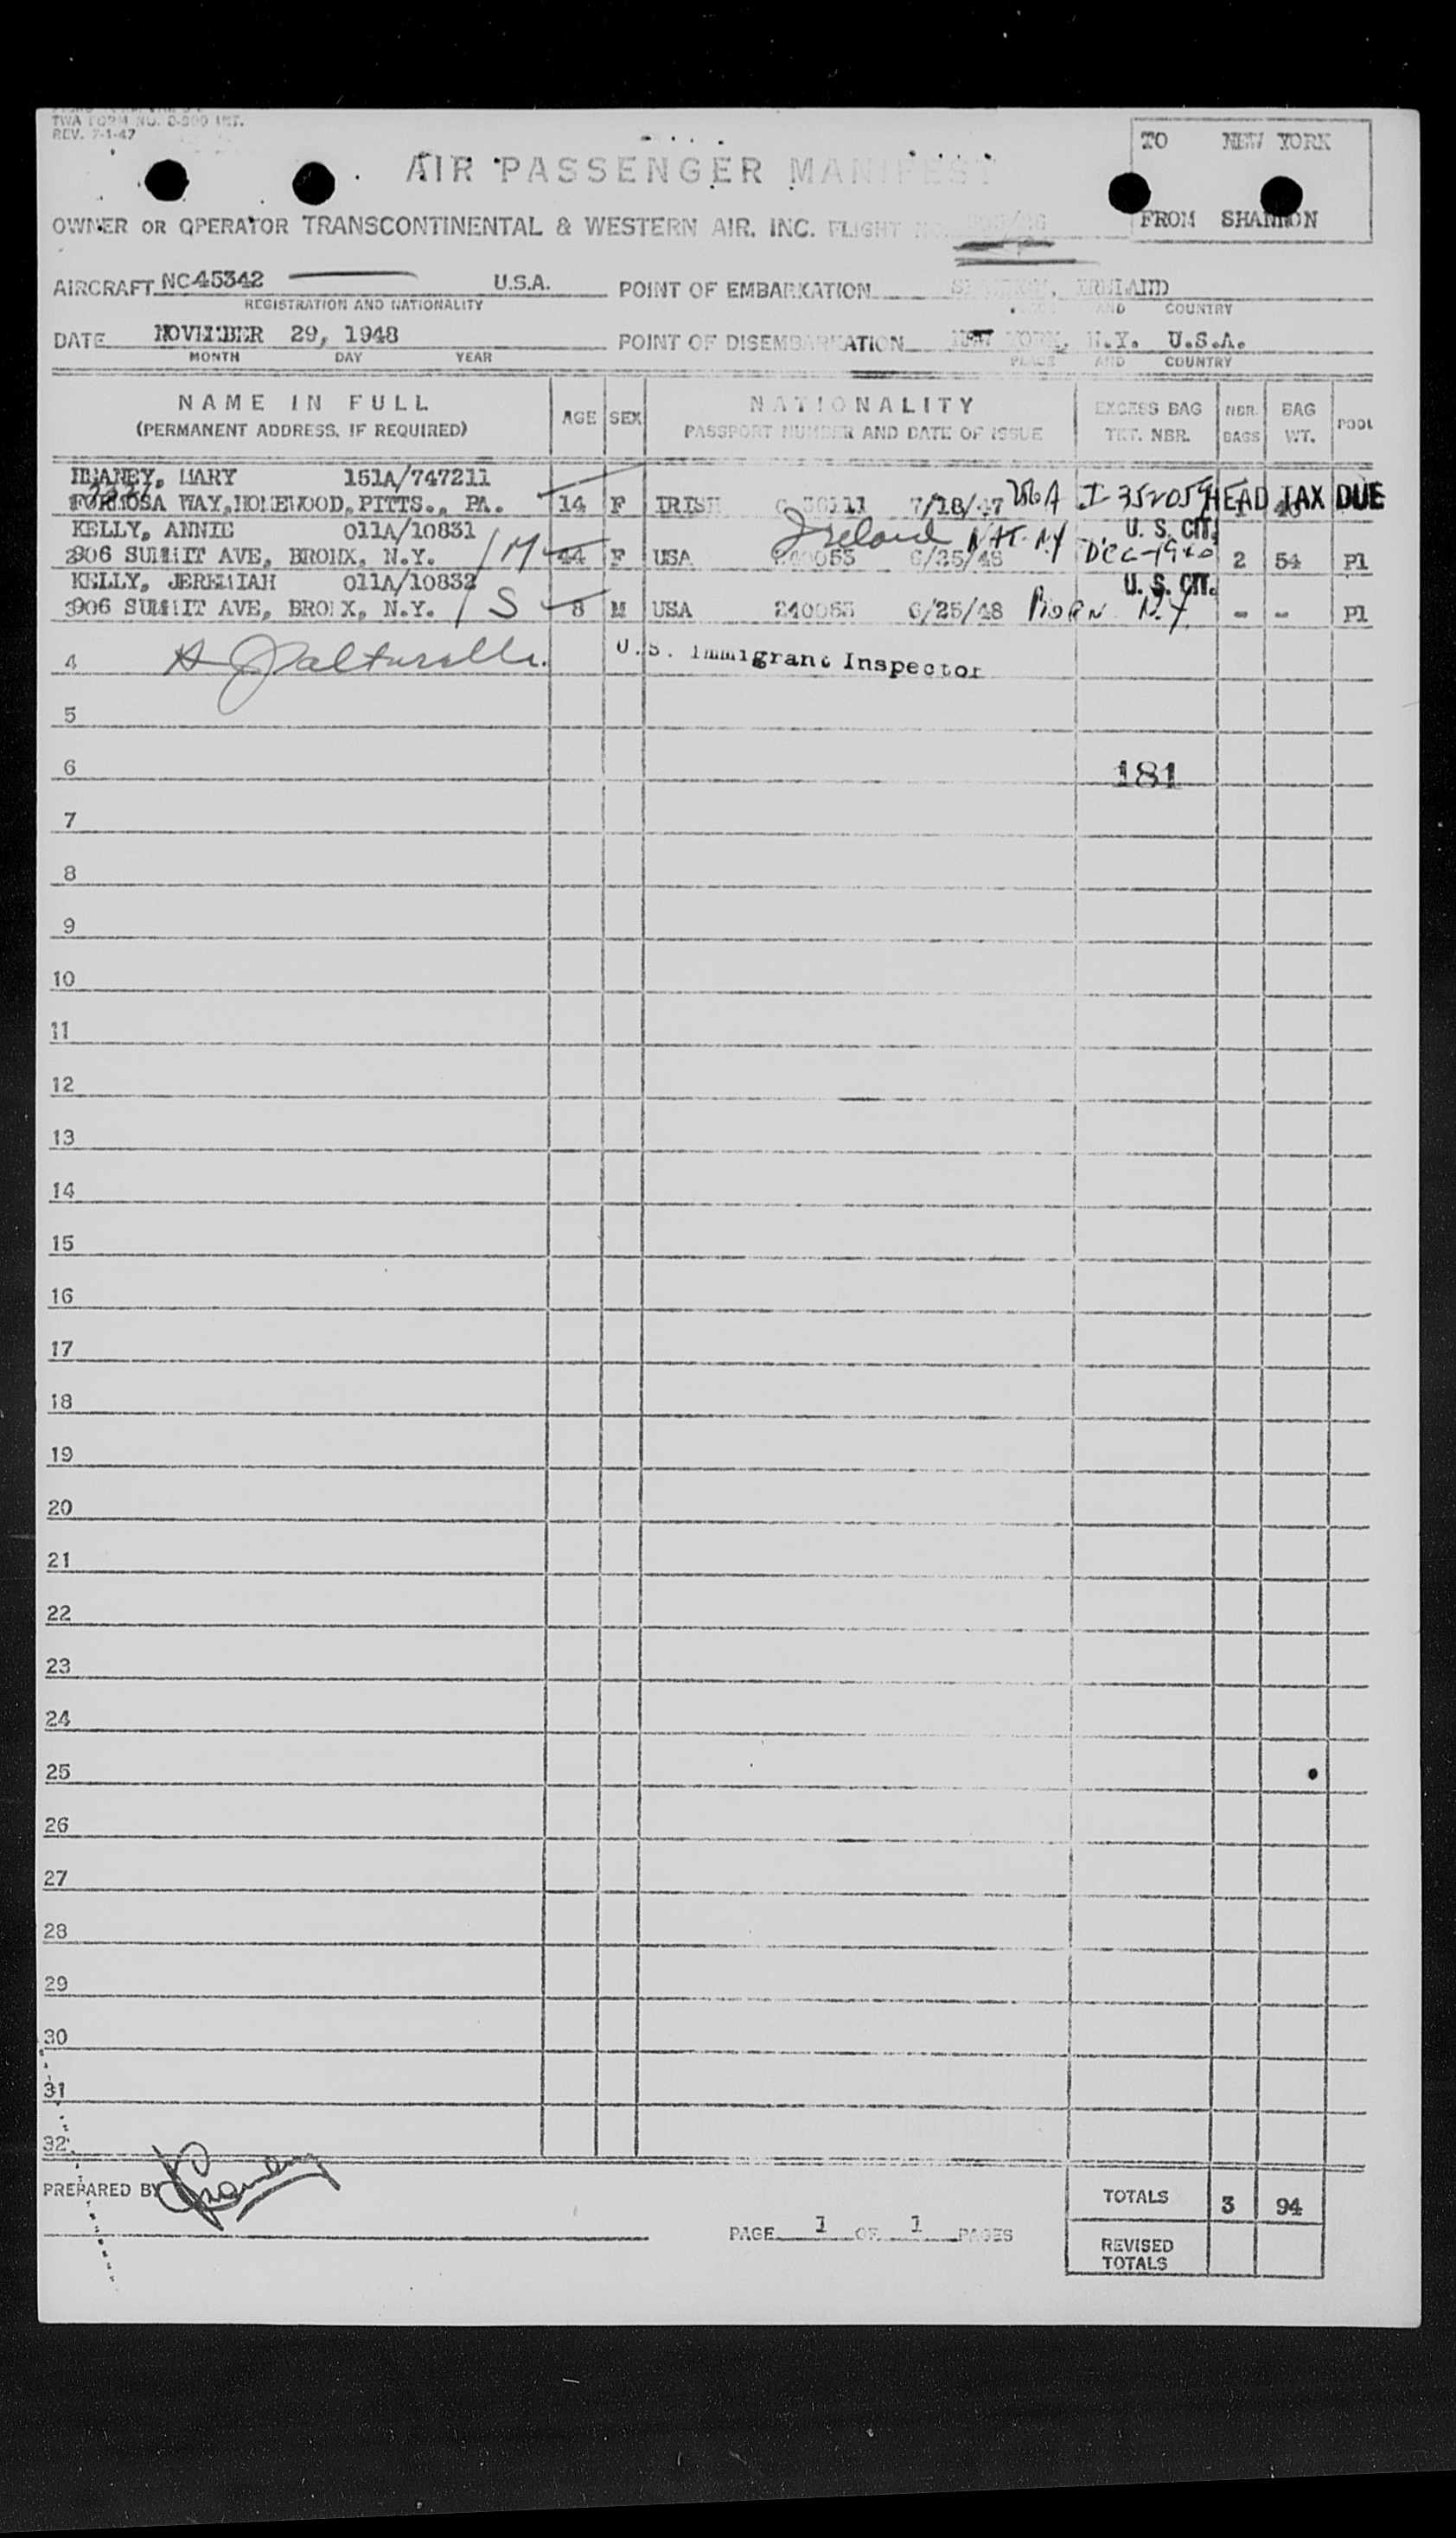 TWA FORM NO. O-800 INT.
REV. 7-1-47
TO NEW YORK
AIR PASSENGER MANIFEST
FROM SHANNON
OWNER OR OPERATOR TRANSCONTINENTAL & WESTERN AIR. INC. FLIGHT NO.
AIRCRAFT NC45342 U.S.A. POINT OF EMBARKATION SHANNON, IRELAND
REGISTRATION AND NATIONALITY AND COUNTRY
DATE NOVEMBER 29, 1948 POINT OF DISEMBARKATION NEW YORK, N.Y. U.S.A.
MONTH DAY YEAR PLACE AND COUNTRY
NAME IN FULL AGE SEX NATIONALITY EXCESS BAG NBR. BAG POOL
(PERMANENT ADDRESS, IF REQUIRED) PASSPORT NUMBER AND DATE OF ISSUE TKT. NBR. BAGS WT.
HEANEY, MARY 151A/747211
FORMOSA WAY, HOMEWOOD, PITTS., PA. 14 F IRISH 7/18/47 I-352059 HEAD TAX DUE
KELLY, ANNIE 011A/10831 Ireland NAT. NY U. S. CIT.
2806 SUMMIT AVE, BRONX, N.Y. / M 44 F USA 6/25/48 Dec-1940 2 54 Pl
KELLY, JEREMIAH 011A/10832 U. S. CIT.
3906 SUMMIT AVE, BRONX, N.Y. / S 8 M USA 240053 6/25/48 BORN N.Y. - - Pl
4 U.S. Immigrant Inspector
5
6 181
7
8
9
10
11
12
13
14
15
16
17
18
19
20
21
22
23
24
25
26
27
28
29
30
31
32
PREPARED BY
TOTALS 3 94
PAGE 1 OF 1 PAGES
REVISED
TOTALS